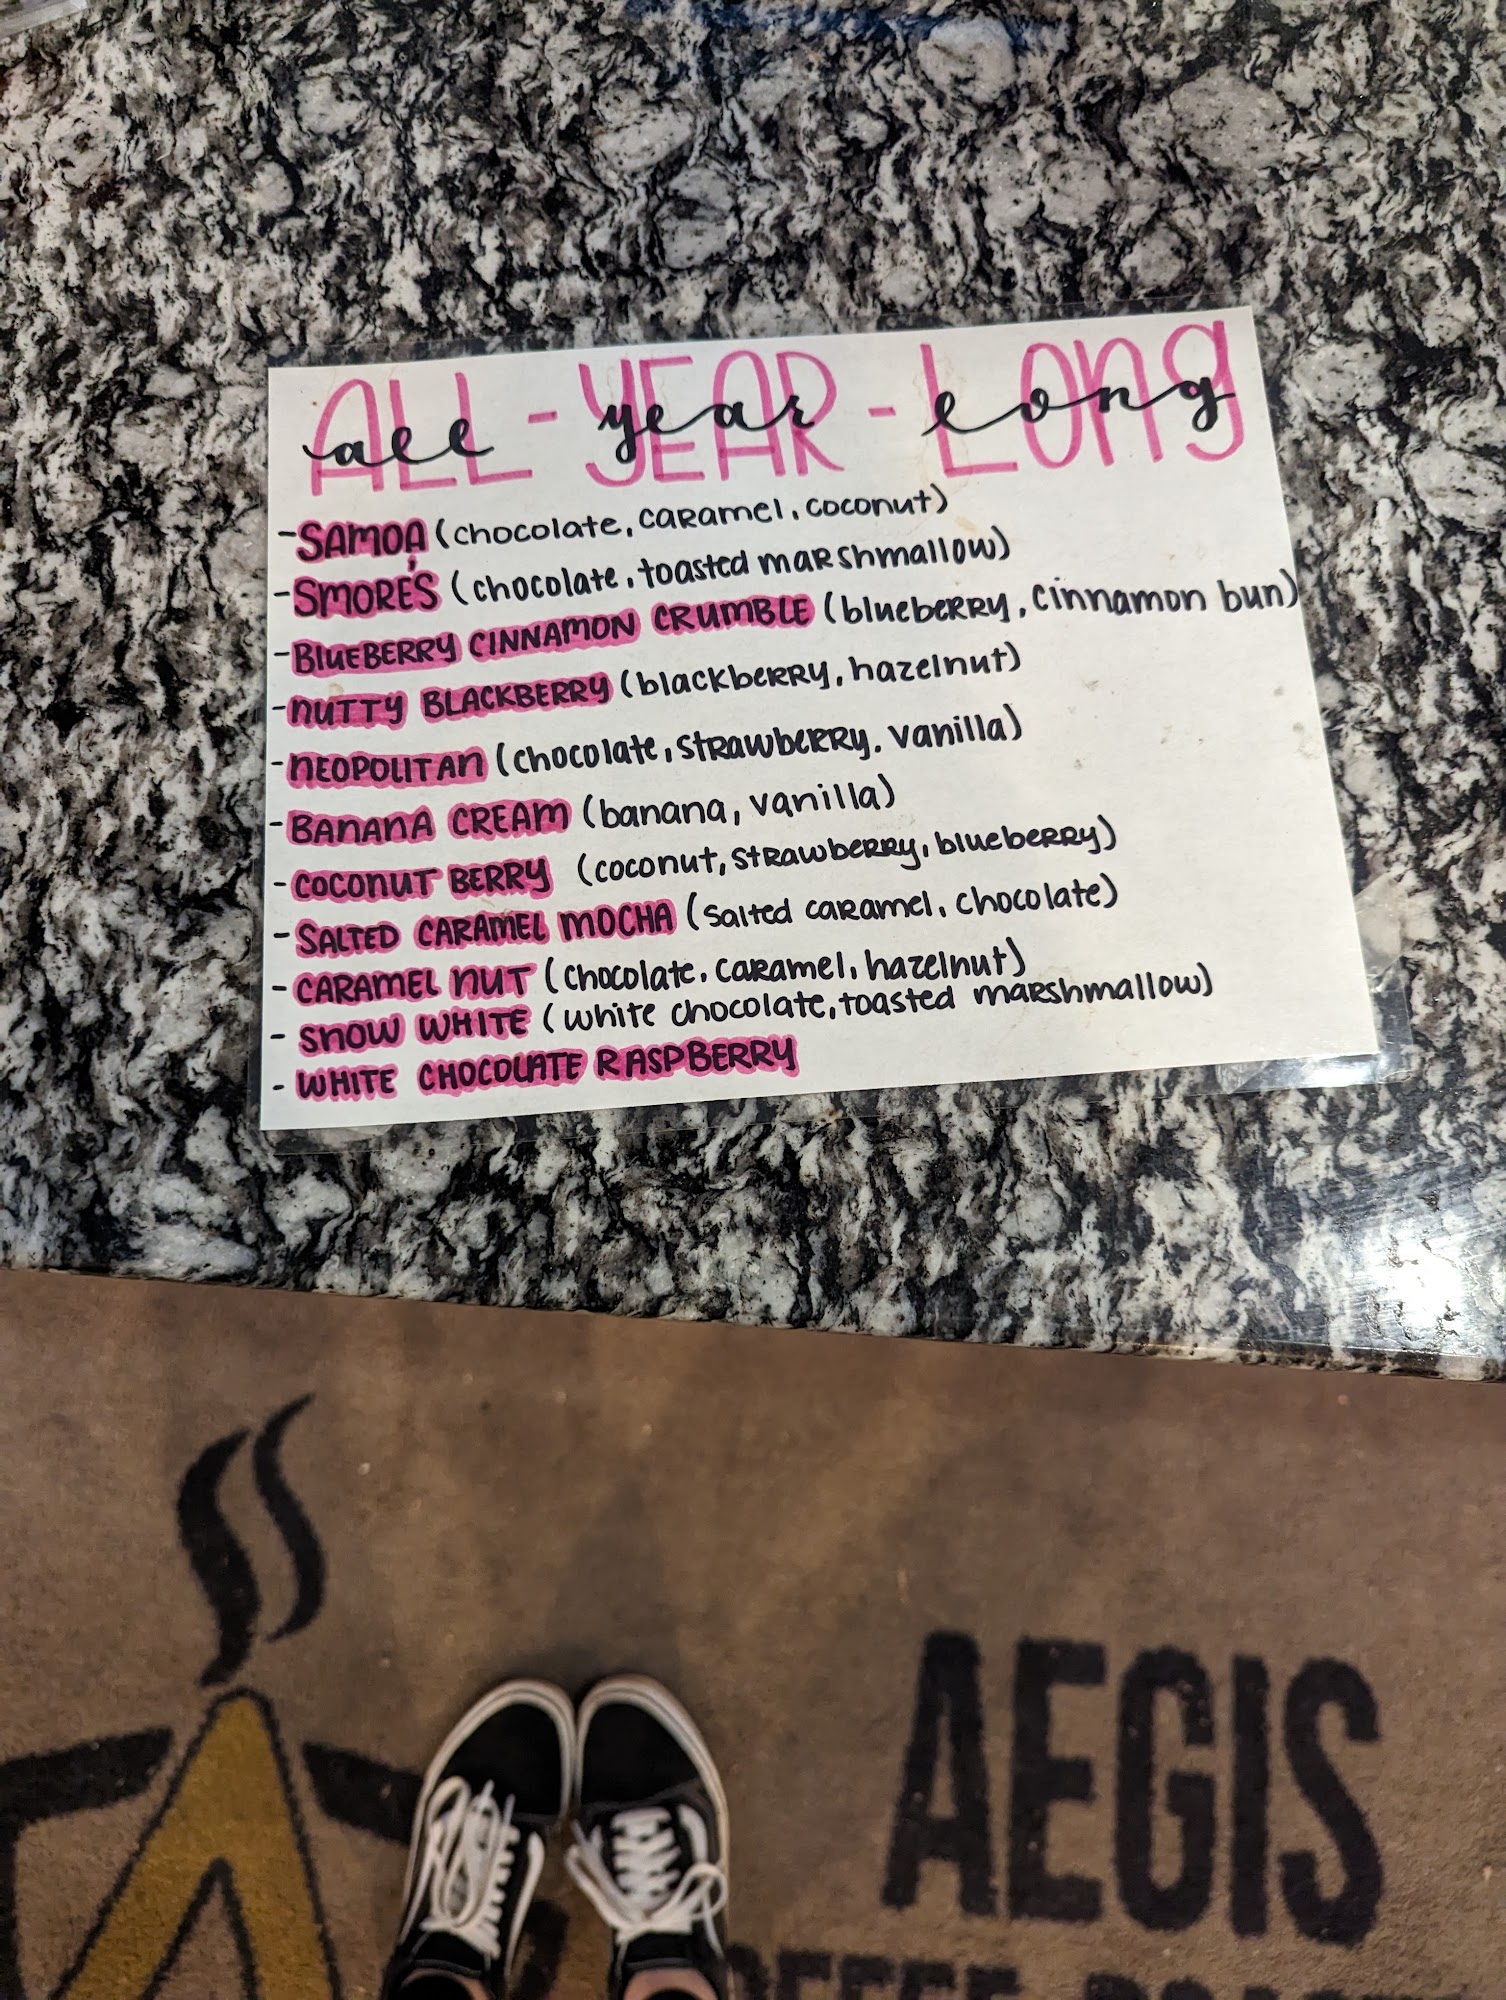 ALL-YEAR-LONG
all year long
-SAMOA (chocolate, caramel, coconut)
-SMORE'S (chocolate, toasted marshmallow)
-BLUEBERRY CINNAMON CRUMBLE (blueberry, cinnamon bun)
-NUTTY BLACKBERRY (blackberry, hazelnut)
-NEOPOLITAN (chocolate, strawberry, vanilla)
-BANANA CREAM (banana, vanilla)
-COCONUT BERRY (coconut, strawberry, blueberry)
-SALTED CARAMEL MOCHA (salted caramel, chocolate)
-CARAMEL NUT (chocolate, caramel, hazelnut)
-SNOW WHITE (white chocolate, toasted marshmallow)
-WHITE CHOCOLATE RASPBERRY
AEGIS